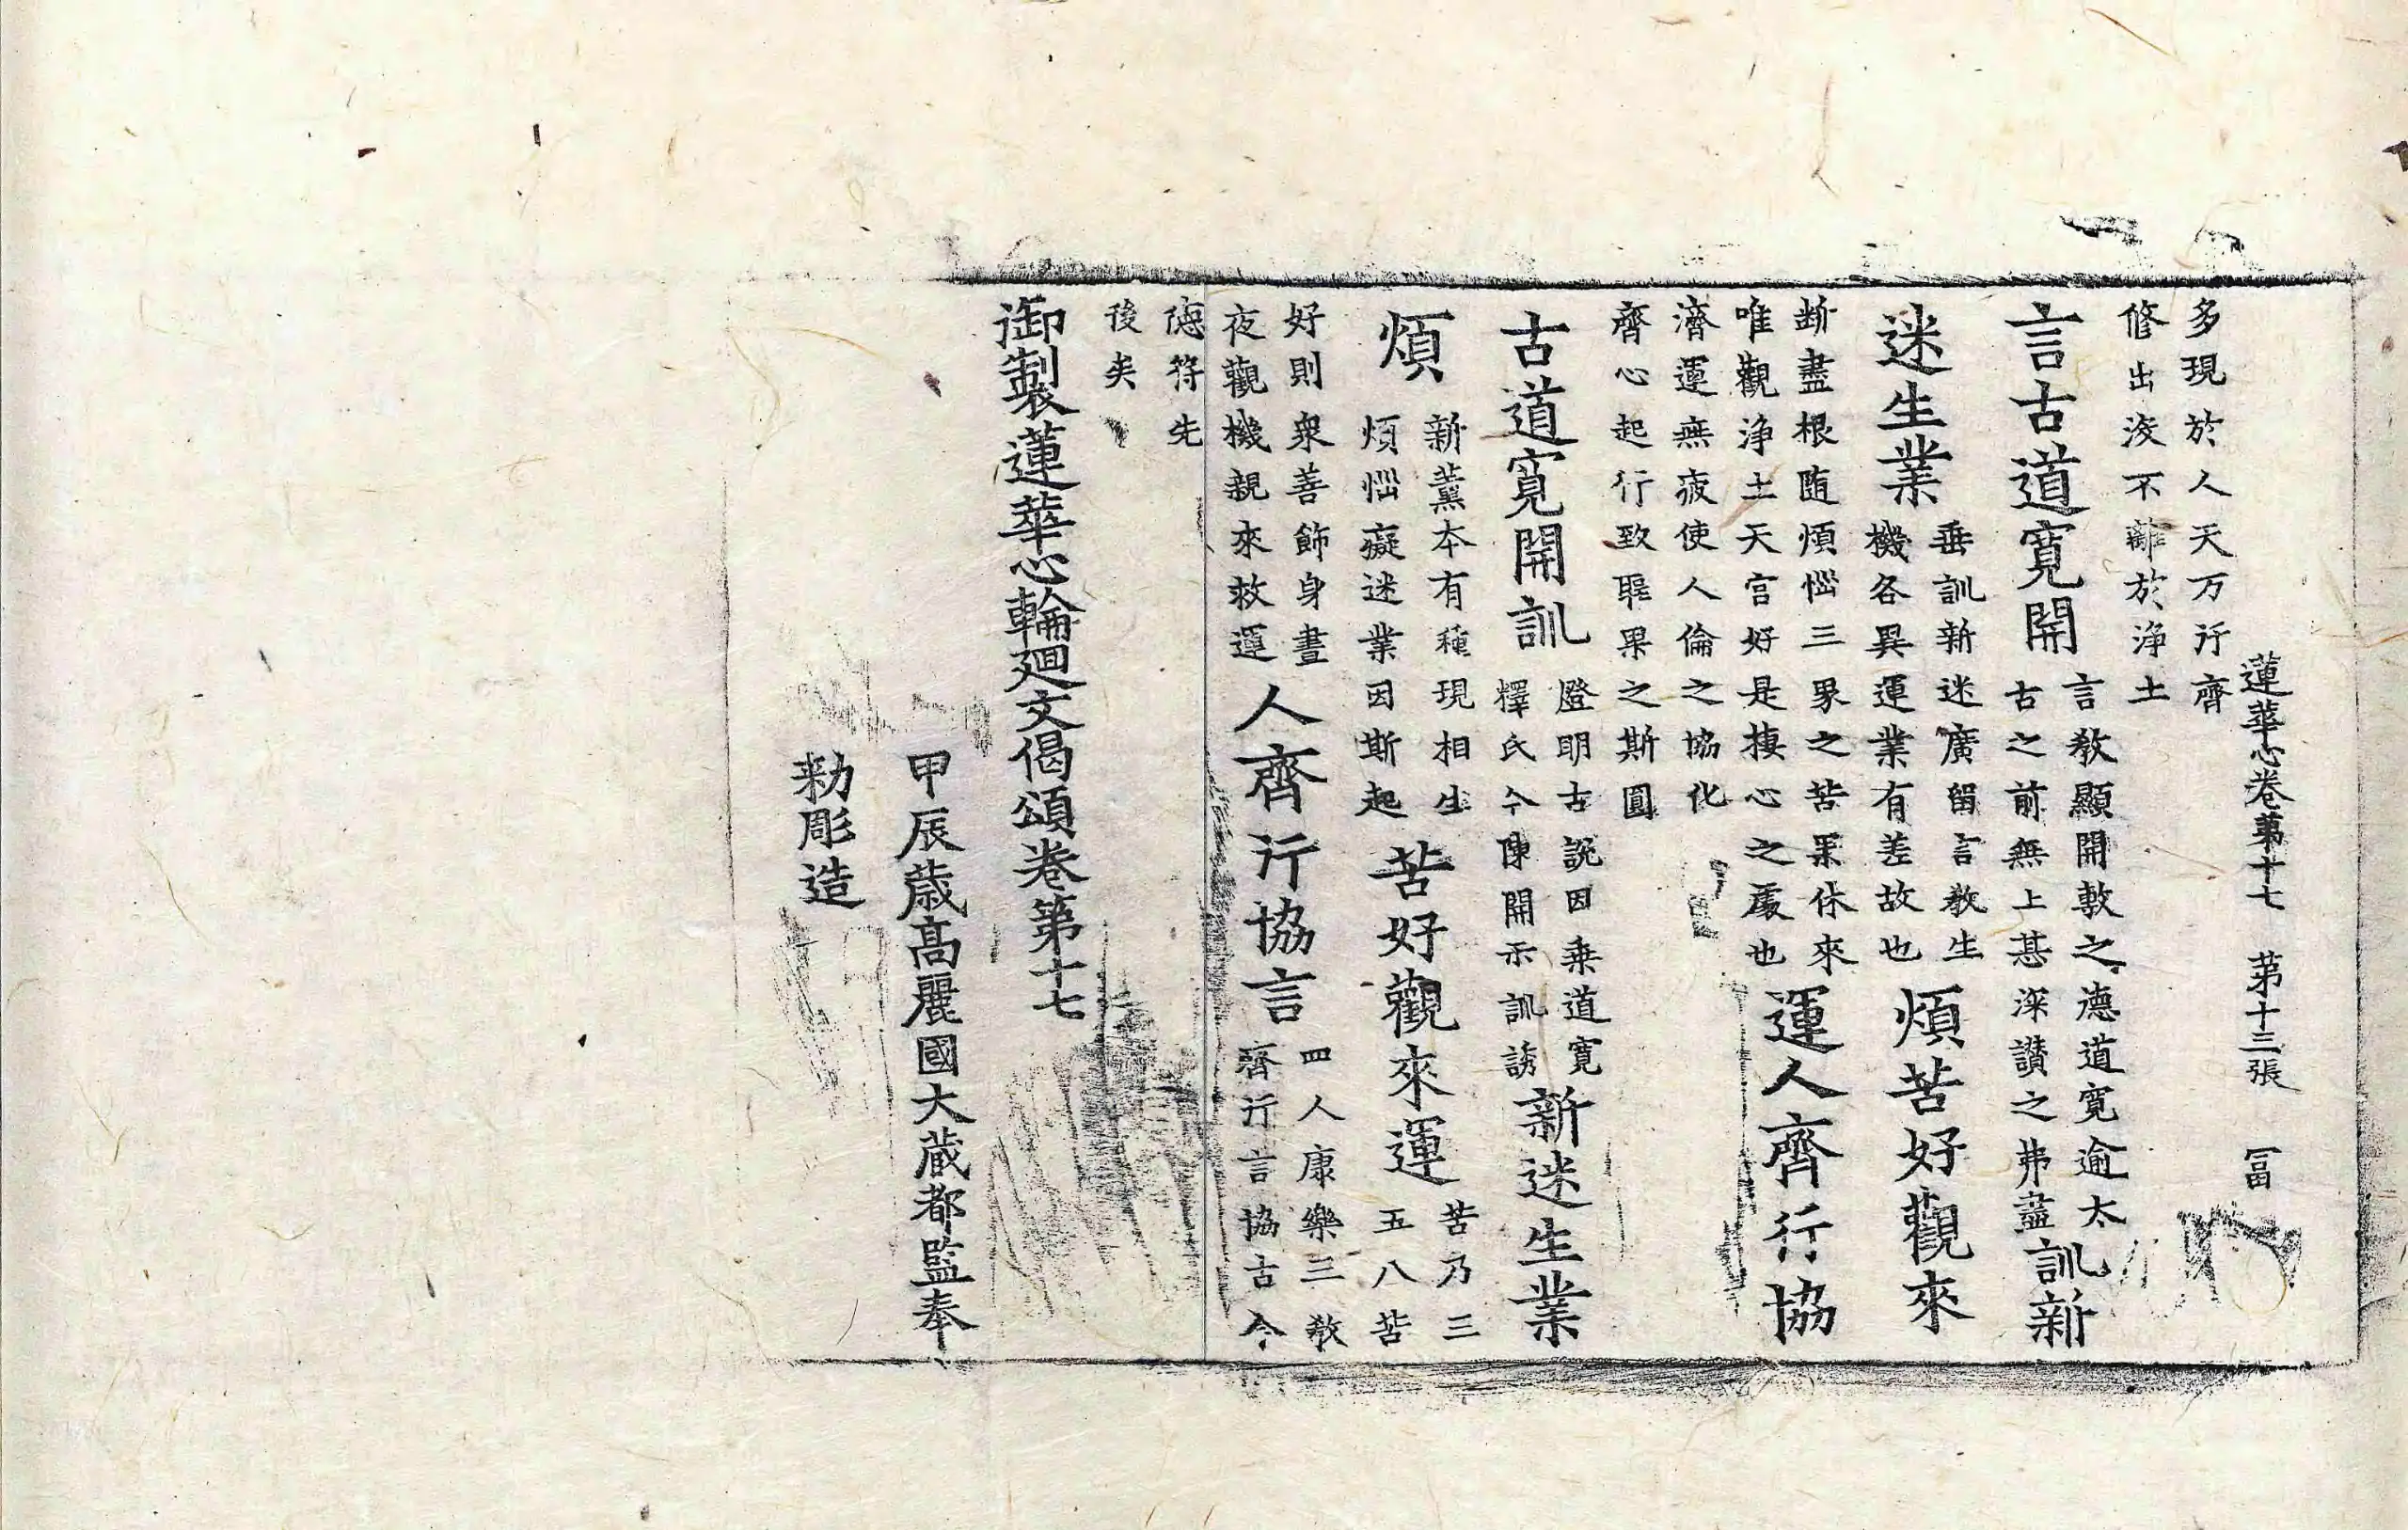 蓮華心卷第十七　第十三張　冨
多現於人天万行齊
修出沒不離於淨土
言古道寬開
言敎顯開敷之德道寬逾太
古之前無上甚深讃之弗盡
訓新
迷生業
垂訓新迷廣留言敎生
機各異運業有差故也
煩苦好觀來
断盡根随煩惱三界之苦果休來
唯觀淨土天宮好是棲心之處也
運人齊行協
濟運無疲使人倫之協化
齊心起行致聖果之斯圓
古道寬開訓
燈明古說因乗道寬
釋氏今陳開示訓誘
新迷生業
煩
新薰本有種現相生
煩惱癡迷業因斯起
苦好觀來運
苦乃三
五八苦
好則衆善飾身晝
夜觀機親來救運
人齊行協言
四人康樂三敎
齊行言協古今
德符先
後矣
御製蓮華心輪廻文偈頌卷第十七
甲辰歲高麗國大藏都監奉
勑彫造